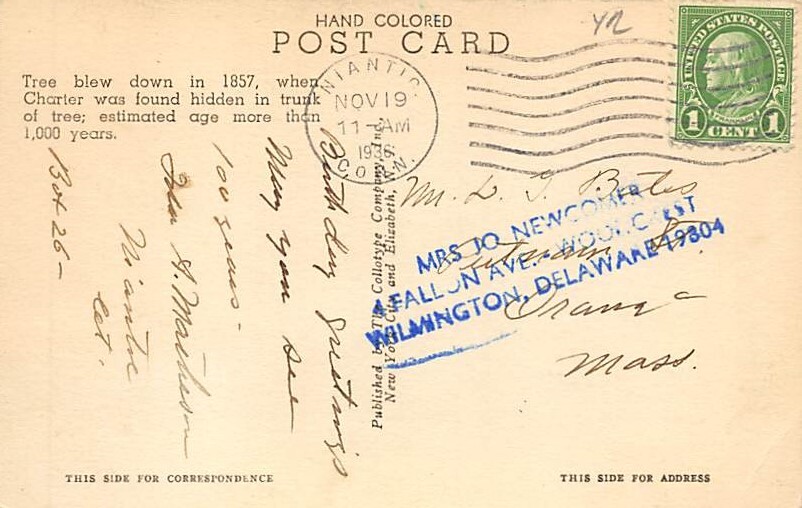 HAND COLORED
POST CARD
Tree blew down in 1857, when
Charter was found hidden in trunk
of tree; estimated age more than
1,000 years.
NIANTIC,
NOV 19
11-AM
1936
CONN.
UNITED STATES POSTAGE
FRANKLIN
1 CENT 1
Birthday Greetings
May you see
100 years -
Ida A. Matheson
Niantic
Ct.
Box 26 -
Published by The Collotype Company, Inc.,
New York City and Elizabeth, N.
Mr. L. G. Bates
Putnam St.
Orange
Mass.
MRS JO NEWCOMER
4 FALLON AVE. WOODCREST
WILMINGTON, DELAWARE 19804
THIS SIDE FOR CORRESPONDENCE
THIS SIDE FOR ADDRESS